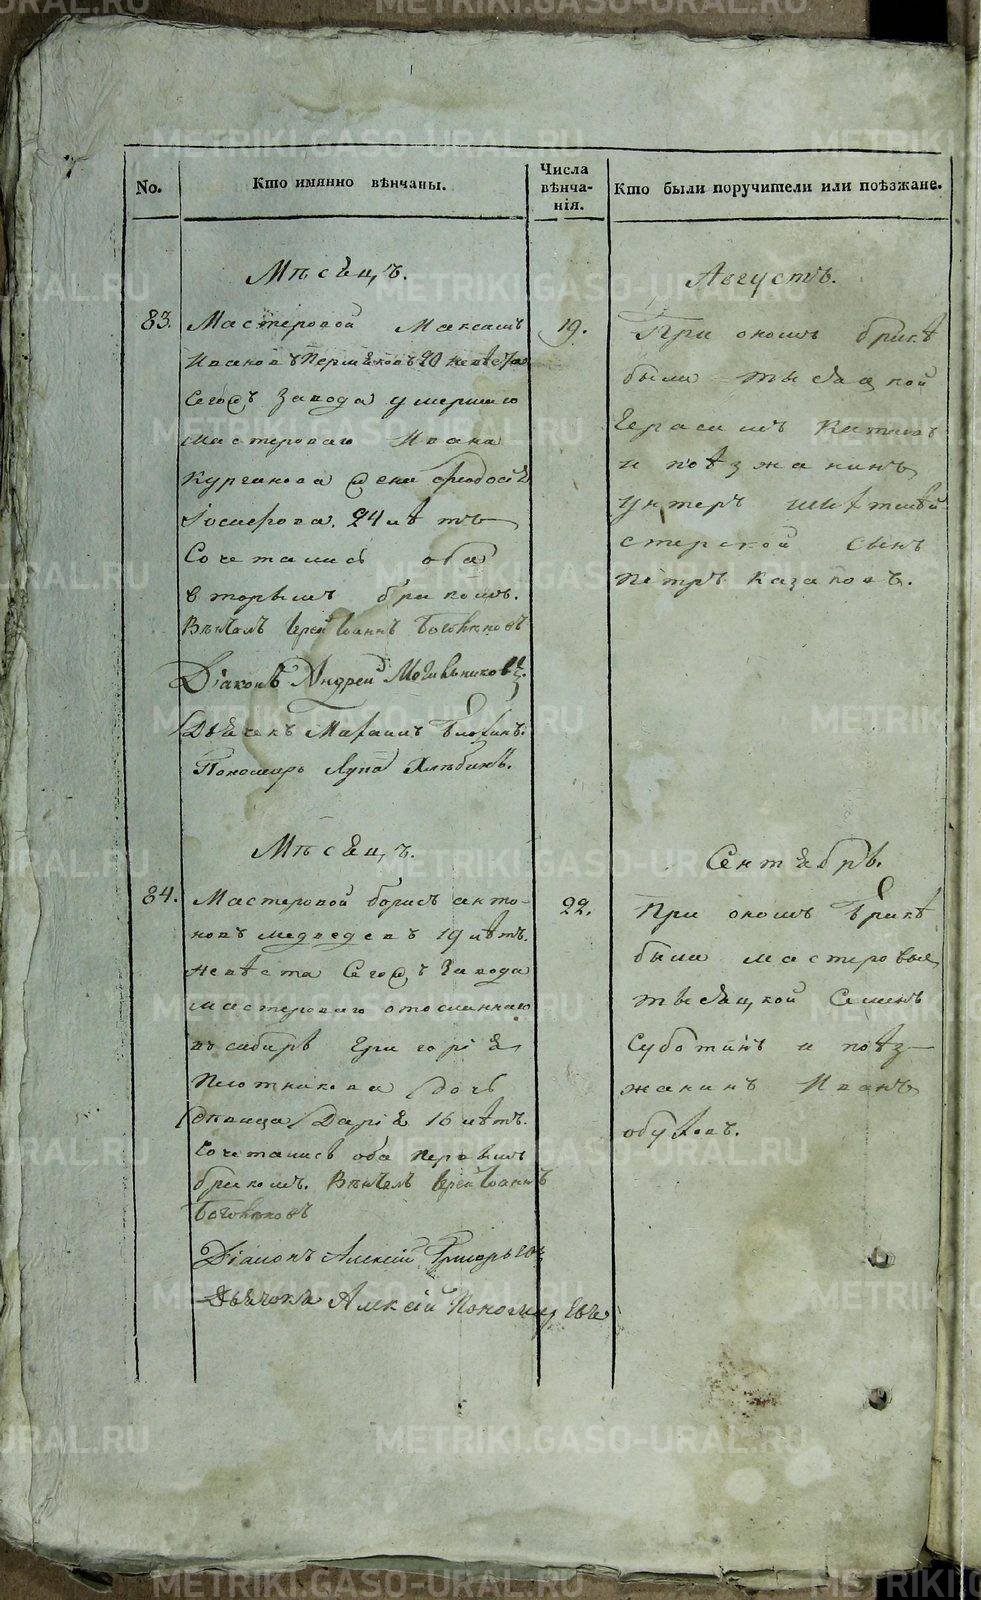 No.
Кто имянно вѣнчаны.
Числа
вѣнча-
нія.
Кто были поручители или поѣзжане.
Мѣсяцъ.
Августъ.
83.
Мастеровой Максимъ
Ивановъ Пермяковъ 20 невѣста
Сегожъ завода умершаго
мастероваго Ивана
Курганова жена Феодосія
Іосифова. 24 лѣтъ
Сочетались оба
вторымъ бракомъ.
Вѣнчалъ Іерей Іоаннъ
Діаконъ Андрей
Дьячекъ Блохинъ.
Пономарь Лупа Хлѣбинъ.
19.
При ономъ бракѣ
были тысяцкой
Герасимъ
и поѣзжанинъ
унтеръ шихтмей-
стерской сынъ
Петръ Казаковъ.
Мѣсяцъ.
Сентябрь.
84.
Мастеровой Борисъ Анто-
новъ Медведевъ 19 лѣтъ.
невѣста Сегожъ завода
мастероваго отосланнаго
въ сибирь Григорія
Плотникова дочь
девица Дарія 16 лѣтъ.
Сочетались оба первымъ
бракомъ. Вѣнчалъ Іерей Іоаннъ
Діаконъ Алексій Григорьевъ
Дьячокъ Алексій Пономаревъ
22.
При ономъ бракѣ
были мастеровые
тысяцкой Семенъ
Суботинъ и поѣз-
жанинъ Иванъ
обуховъ.
METRIKI.GASO-URAL.RU